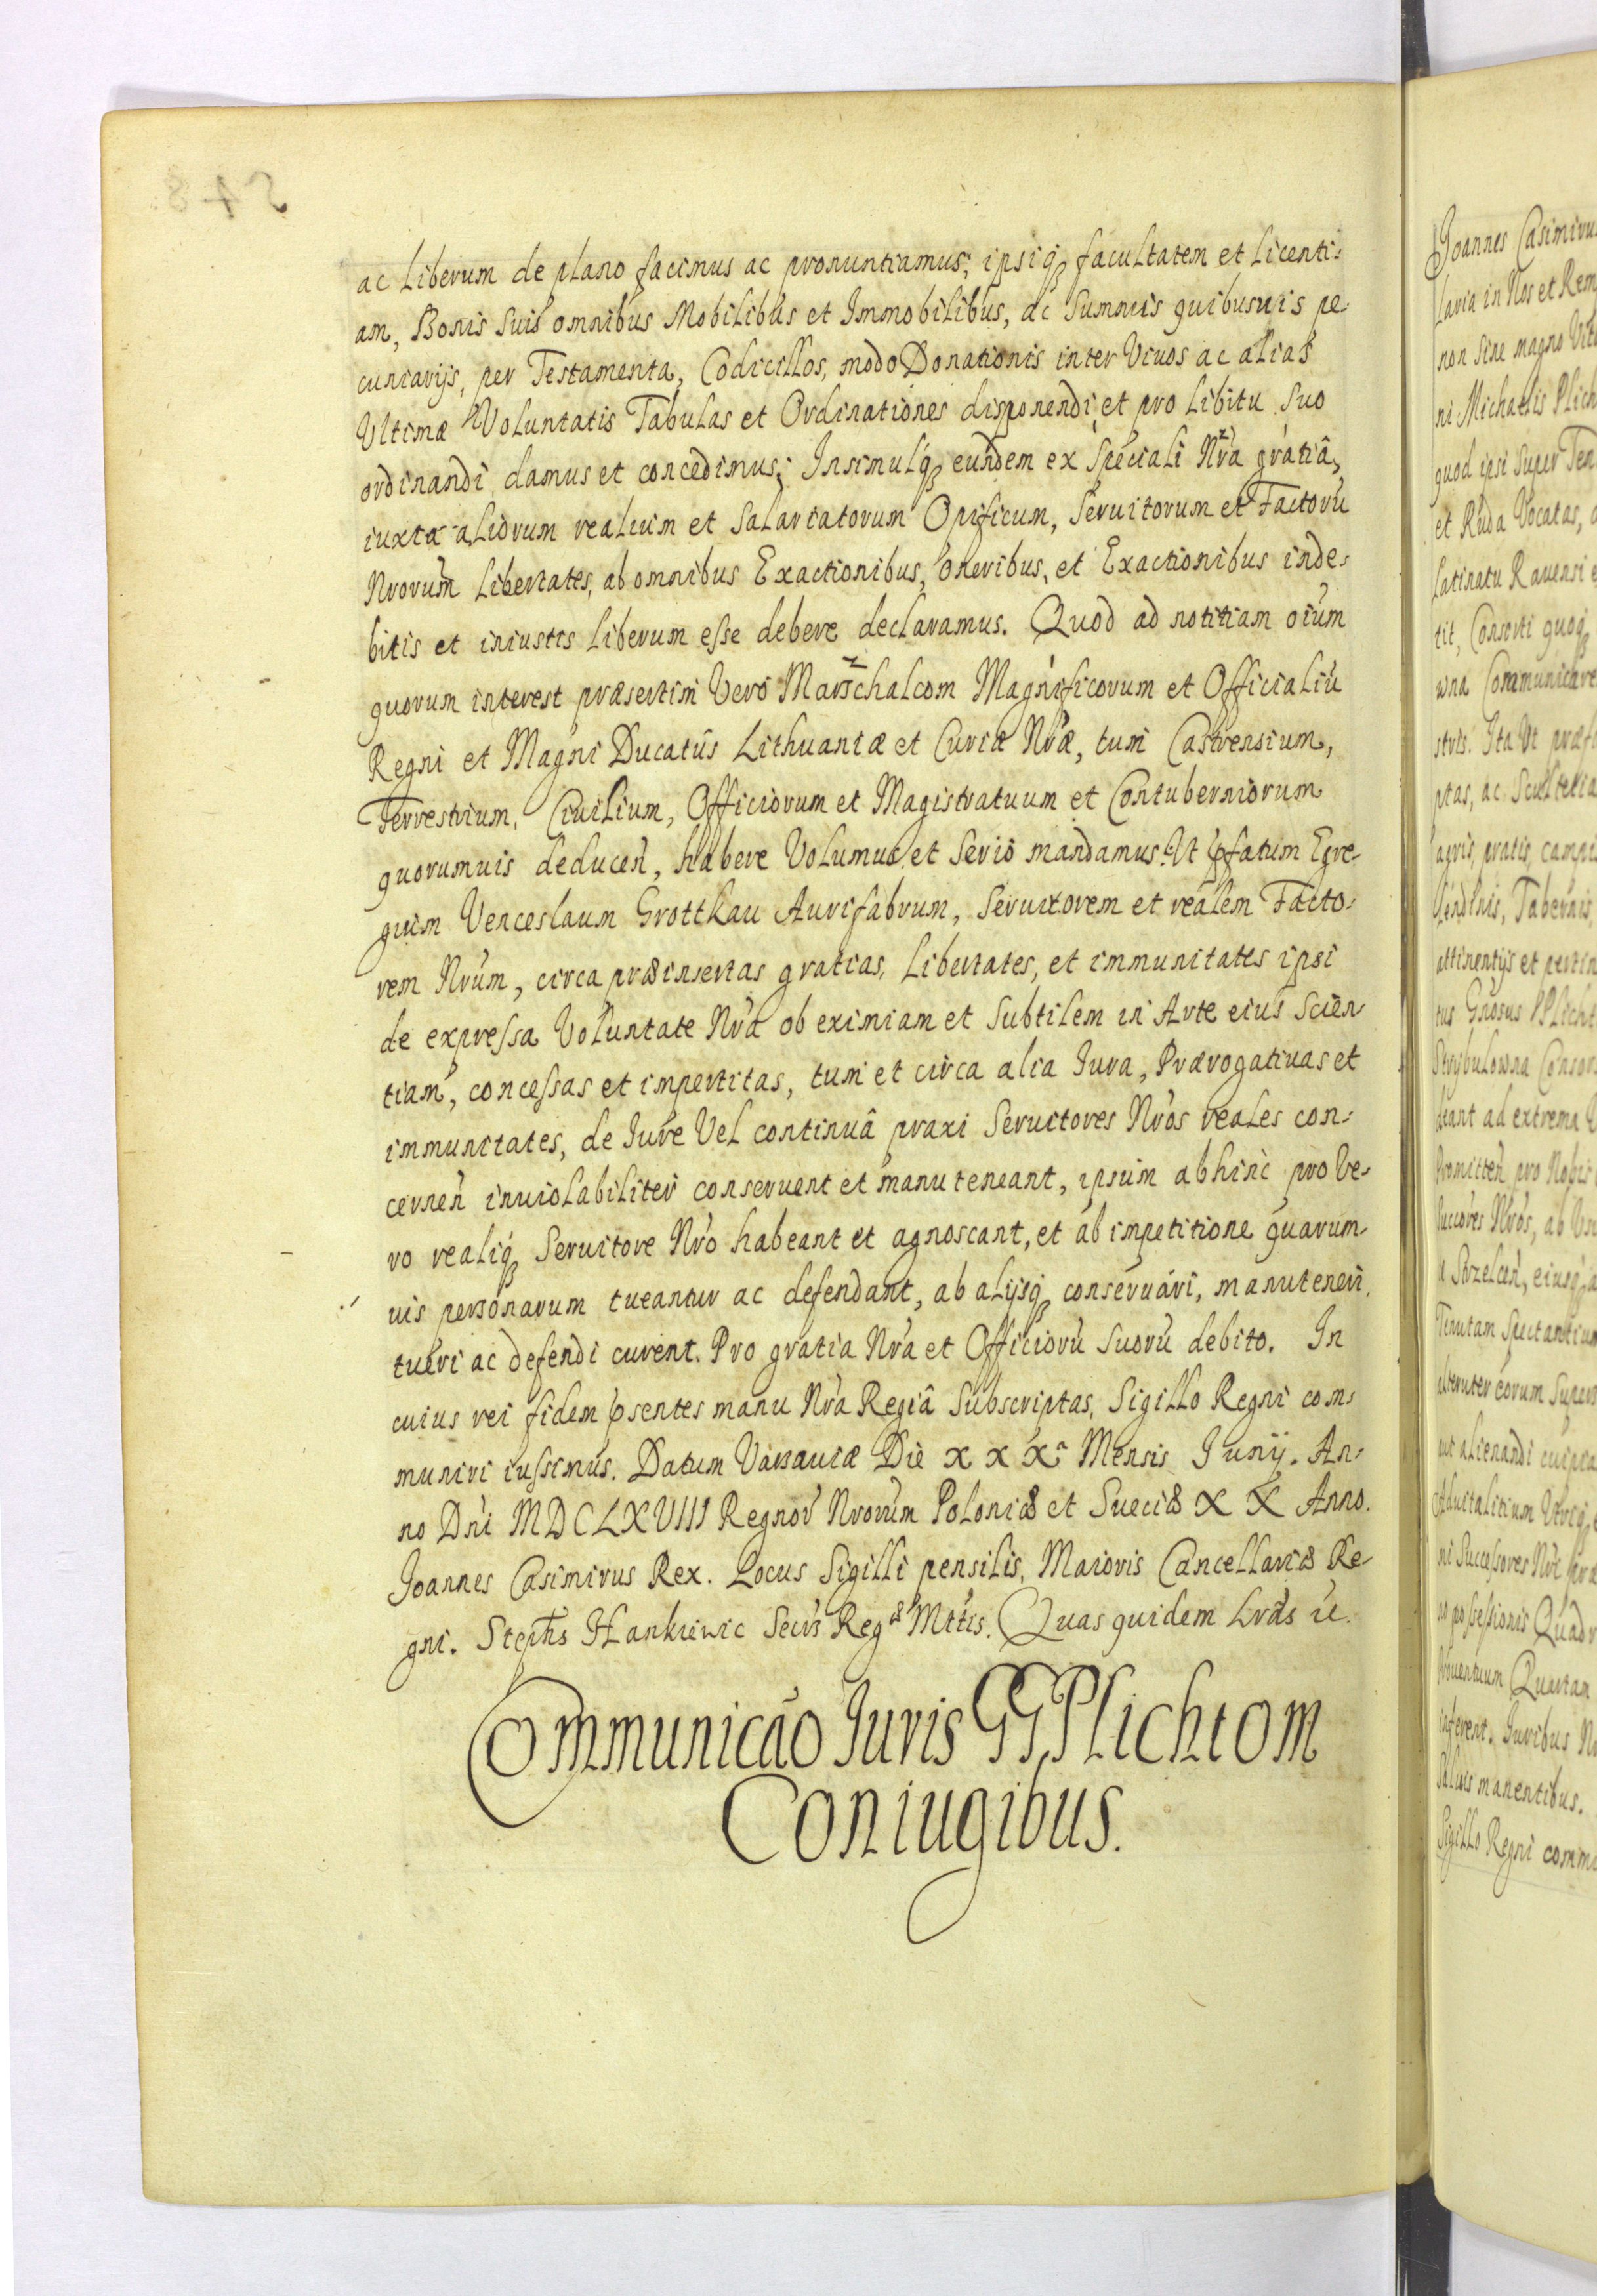 ac liberum de plano facimus ac pronuntiamus; ipsiq₃ facultatem et licenti⸗
am, Bonis suis omnibus Mobilibus et Immobilibus, ac summis quibusuis pe⸗
cuniarijs, per Testamenta, Codicillos, modo Donationis inter Viuos ac alias
Vltimæ Voluntatis Tabulas et Ordinationes disponendi et pro libitu suo
ordinandi damus et concedimus; Insimulq₃ eundem ex speciali Nrã gratiâ,
iuxta aliorum realium et salariatorum Opificum, seruitorum et Factorũ
Nrorum libertates, ab omnibus Exactionibus, Oneribus, et Exactionibus inde⸗
bitis et iniustis liberum esse debere declaramus. Quod ad notitiam oium
quorum interest præsertim Vero Marschalcom Magnificorum et Officialiũ
Regni et Magni Ducatûs Lithuaniæ et Curiæ Nræ, tum Castrensium,
Terrestrium, Ciuilium, Officiorum et Magistratuum et Contuberniorum
quorumuis deducen̄, habere Volumus et serio mandamus. Ut p̱fatum Egre⸗
gium Venceslaum Grottkau Aurifabrum, seruitorem et realem Facto⸗
rem Nrum, circa præinsertas gratias, libertates, et immunitates ipsi
de expressa Voluntate Nra ob eximiam et subtilem in Arte eius scien⸗
tiam, concessas et impertitas, tum et circa alia Iura, Prærogatiuas et
immunitates, de Iure Vel continuâ praxi seruitores Nros reales con⸗
cernen̄ inuiolabiliter conseruent et manuteneant, ipsum abhinc pro Ve⸗
ro realiq₃ seruitore Nro habeant et agnoscant, et ab impetitione quarum⸗
uis personarum tueantur ac defendant, ab alijsq₃ conseruari, manuteneri,
tueri ac defendi curent. Pro gratia Nra et Officiorũ suorũ debito. In
cuius rei fidem p̱sentes manu Nra Regiâ subscriptas, Sigillo Regni com⸗
muniri iussimus. Datum Varsauiæ Die XXXª Mensis Junij. An⸗
no Dni MDCLXVIII Regnor̃ Nrorum Poloniæ et Sueciæ XX Anno.
Joannes Casimirus Rex. Locus Sigilli pensilis, Maioris Cancellariæ Re⸗
gni. Stephs Hankiewic Secrs Regæ Mttis. Quas quidem Lras
Communicão Iuris GG, Plichtom
Coniugibus.
Joannes Casimirus
laria in Nos et Rem
non sine magno
ni Michaelis Plich
quod ipsi super Ten
et Ruda Vocatas,
latinatu Rauensi
tit, Consorti quoq₃
Communicare
stris. Ita Ut
ptas, ac Scultetia
agris, pratis, campis
Tabernis
attinentijs et pertin
tus Gnosus Plicht
deant ad extrema
Promitten̄ pro Nobis
succores Nros, ab
Tenutam spectantium
alteruter eorum super
aut alienandi
Aduitalitium
ni Successores Nri
possessionis
prouentuum Quartam
inferent. Iuribus
saluis manentibus.
Sigillo Regni comm